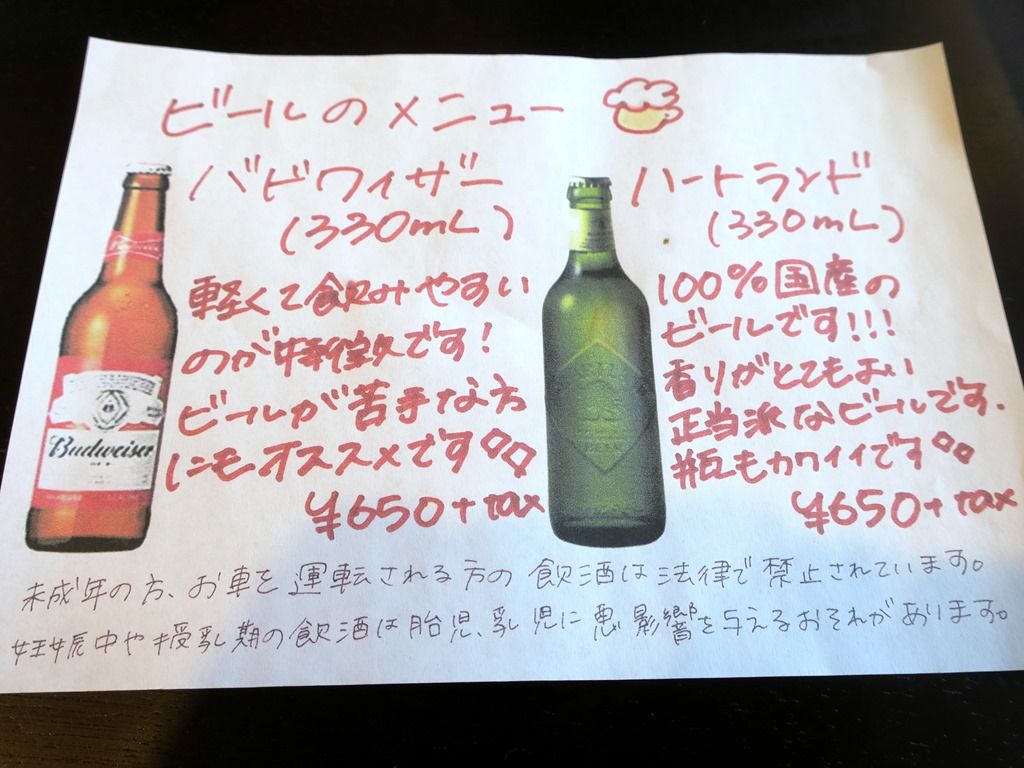 ビールのメニュー
バドワイザー
(330mL)
軽くて飲みやすい
のが特徴です!
ビールが苦手な方
にもオススメです
¥650+tax
Budweiser
ハートランド
(330mL)
100%国産の
ビールです!!!
香りがとてもよい
正当派なビールです.
瓶もカワイイです
¥650+tax
未成年の方、お車を運転される方の飲酒は法律で禁止されています。
妊娠中や授乳期の飲酒は胎児、乳児に悪影響を与えるおそれがあります。